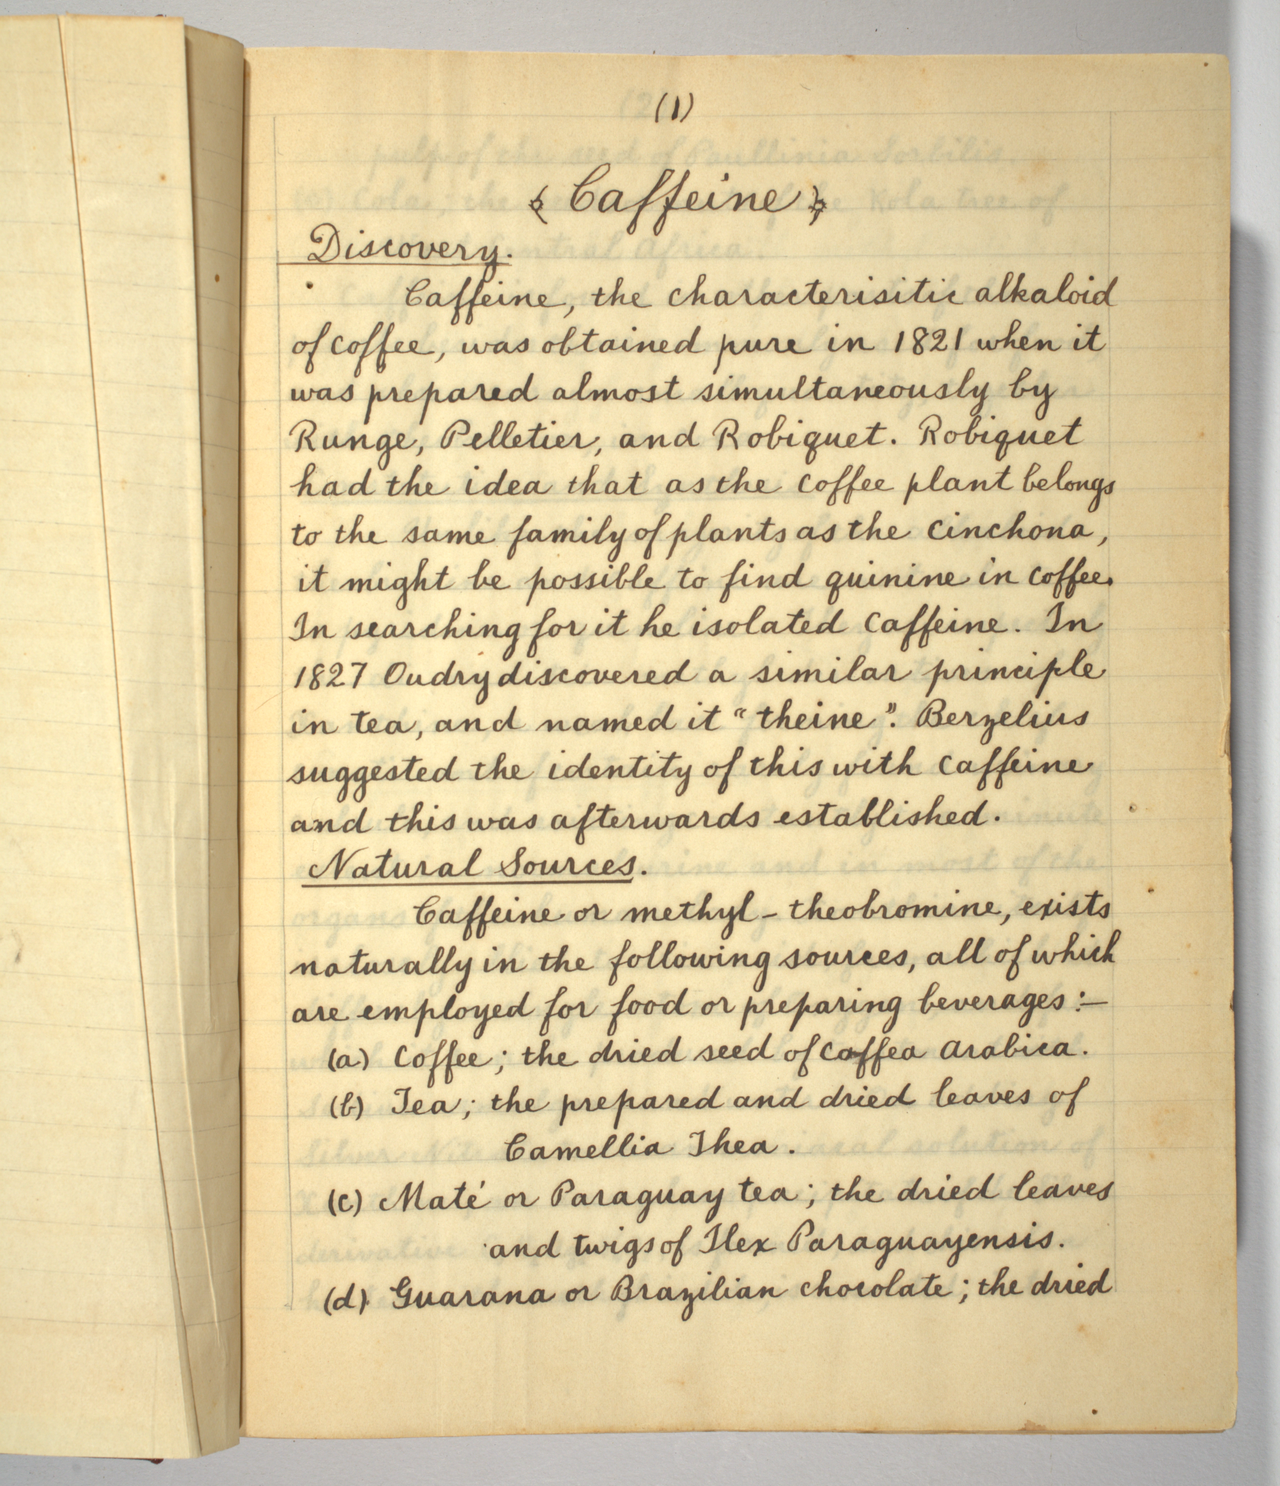 (1)
Caffeine
Discovery.
Caffeine, the characterisitic alkaloid
of coffee, was obtained pure in 1821 when it
was prepared almost simultaneously by
Runge, Pelletier, and Robiquet. Robiquet
had the idea that as the coffee plant belongs
to the same family of plants as the cinchona,
it might be possible to find quinine in coffee.
In searching for it he isolated caffeine. In
1827 Oudry discovered a similar principle
in tea, and named it "theine". Berzelius
suggested the identity of this with caffeine
and this was afterwards established.
Natural Sources.
Caffeine or methyl-theobromine, exists
naturally in the following sources, all of which
are employed for food or preparing beverages:—
(a) Coffee; the dried seed of Caffea arabica.
(b) Tea; the prepared and dried leaves of
Camellia Thea.
(c) Maté or Paraguay tea; the dried leaves
and twigs of Ilex Paraguayensis.
(d) Guarana or Brazilian chocolate; the dried